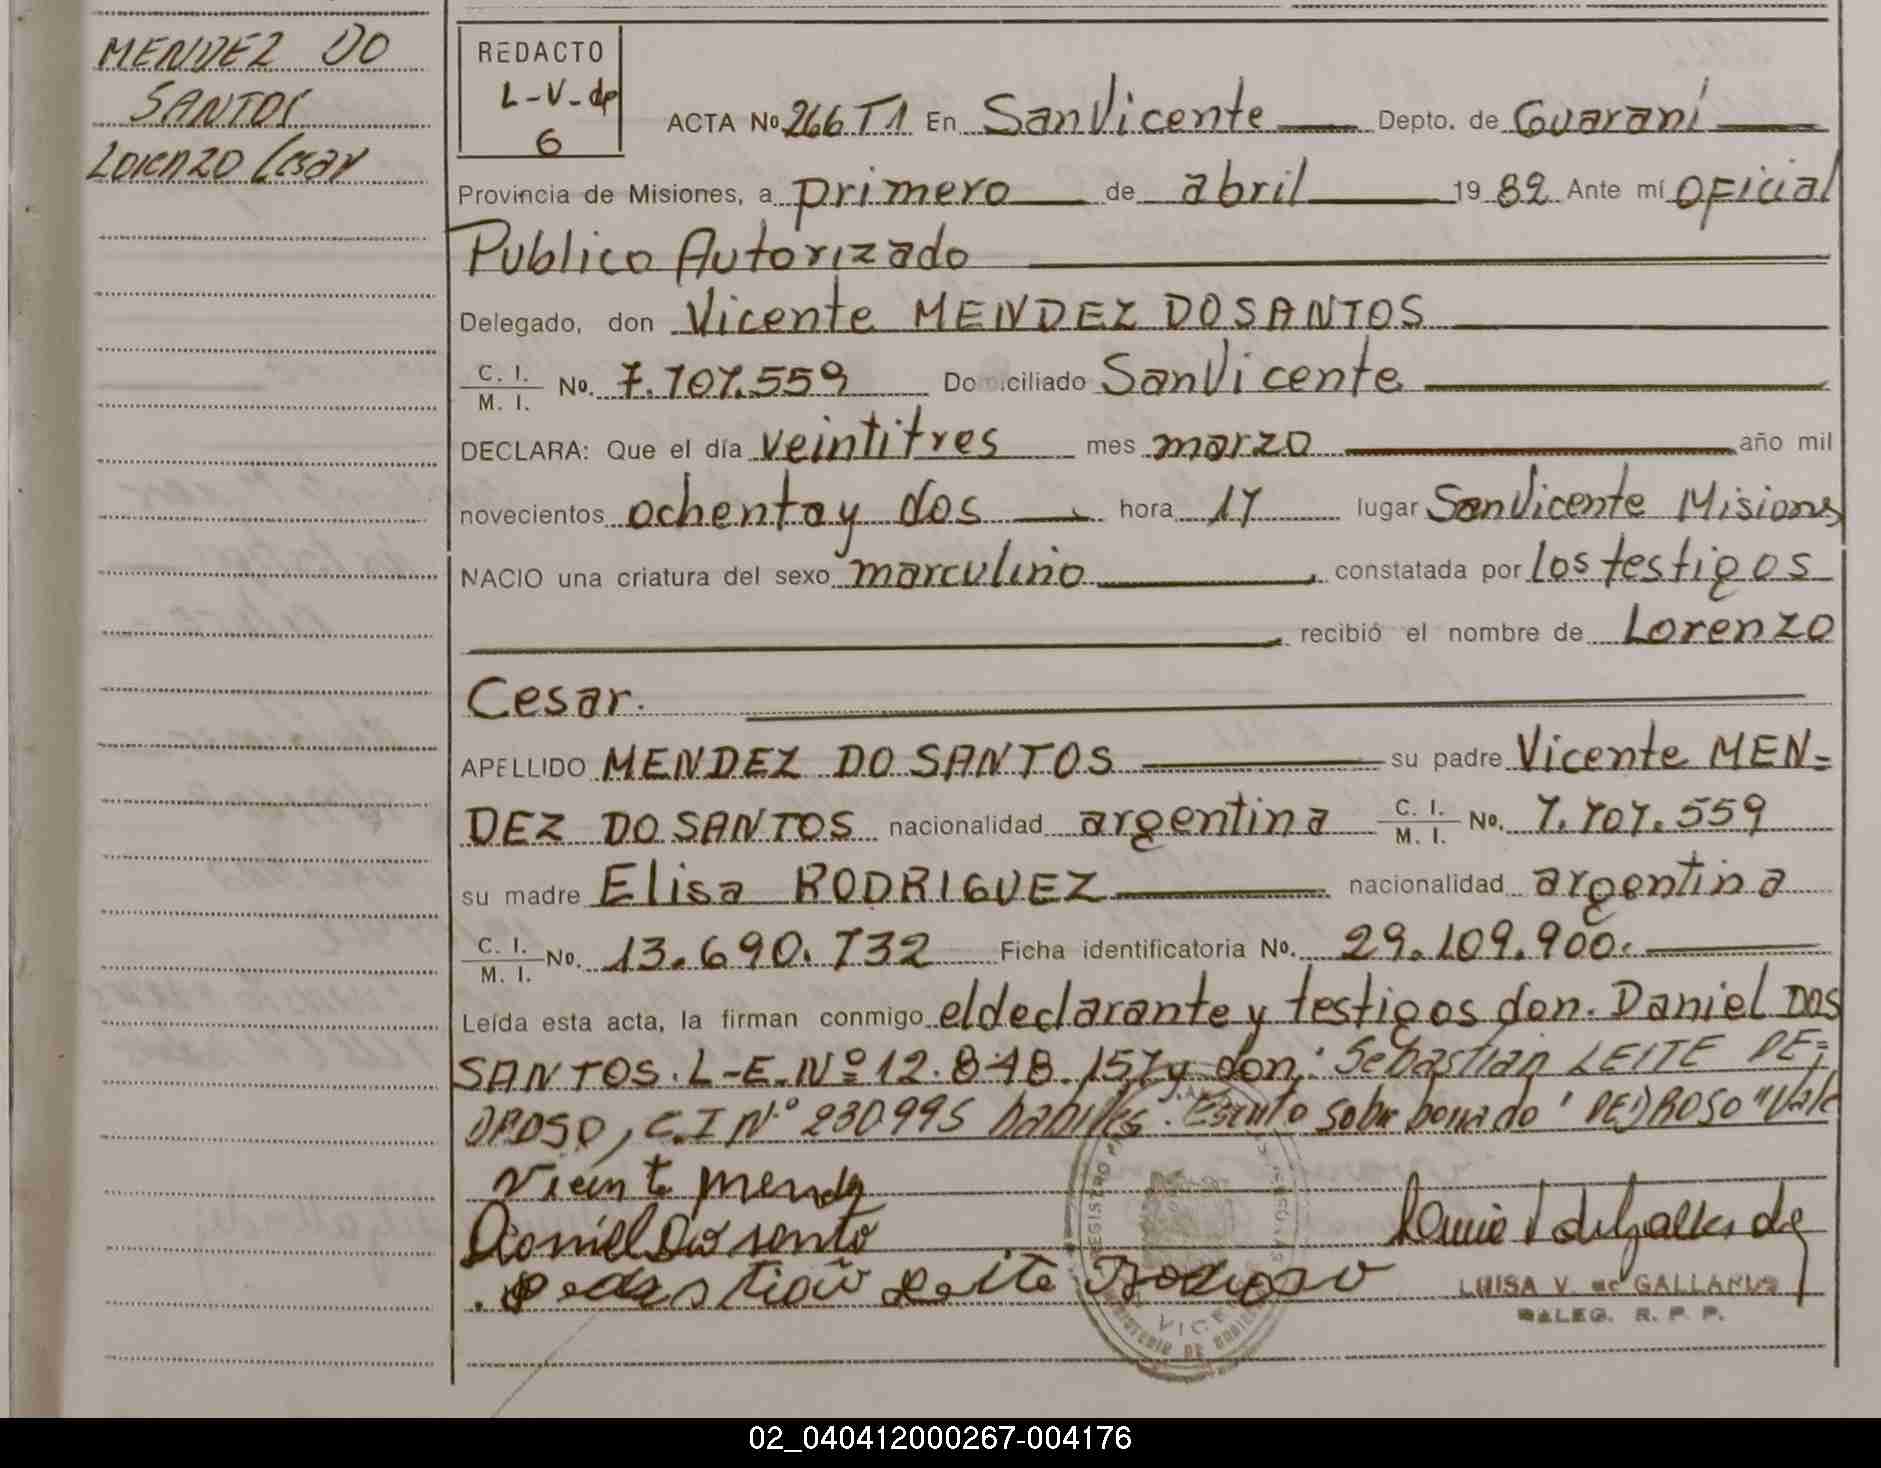 MENDEZ DO
SANTOS
Lorenzo Cesar
REDACTO
L-V-de
G
ACTA No 266 T1 En San Vicente Depto. de Guaraní
Provincia de Misiones, a primero de abril 1982 Ante mí Oficial
Publico Autorizado
Delegado, don Vicente MENDEZ DO SANTOS
C. I. / M. I. No. 7.707.559 Domiciliado San Vicente
DECLARA: Que el día veintitres mes marzo año mil
novecientos ochenta y dos hora 17 lugar San Vicente Misiones
NACIO una criatura del sexo masculino, constatada por los testigos
recibió el nombre de Lorenzo
Cesar.
APELLIDO MENDEZ DO SANTOS su padre Vicente MEN=
DEZ DO SANTOS nacionalidad argentina C. I. / M. I. No. 7.707.559
su madre Elisa RODRIGUEZ nacionalidad argentina
C. I. / M. I. No. 13.690.732 Ficha identificatoria No. 29.109.900.
Leída esta acta, la firman conmigo el declarante y testigos don. Daniel DOS
SANTOS. L-E. Nº 12.848.157 y don: Sebastian LEITE PE=
DROSO, C.I Nº 230995 habiles. Escrito sobre borrado "PEDROSO" Vale
Vicente Mendez
Daniel Dos Santo
Sebastião Leite Pedroso
LUISA V. de GALLARDO
DELEG. R. P. P.
02_040412000267-004176